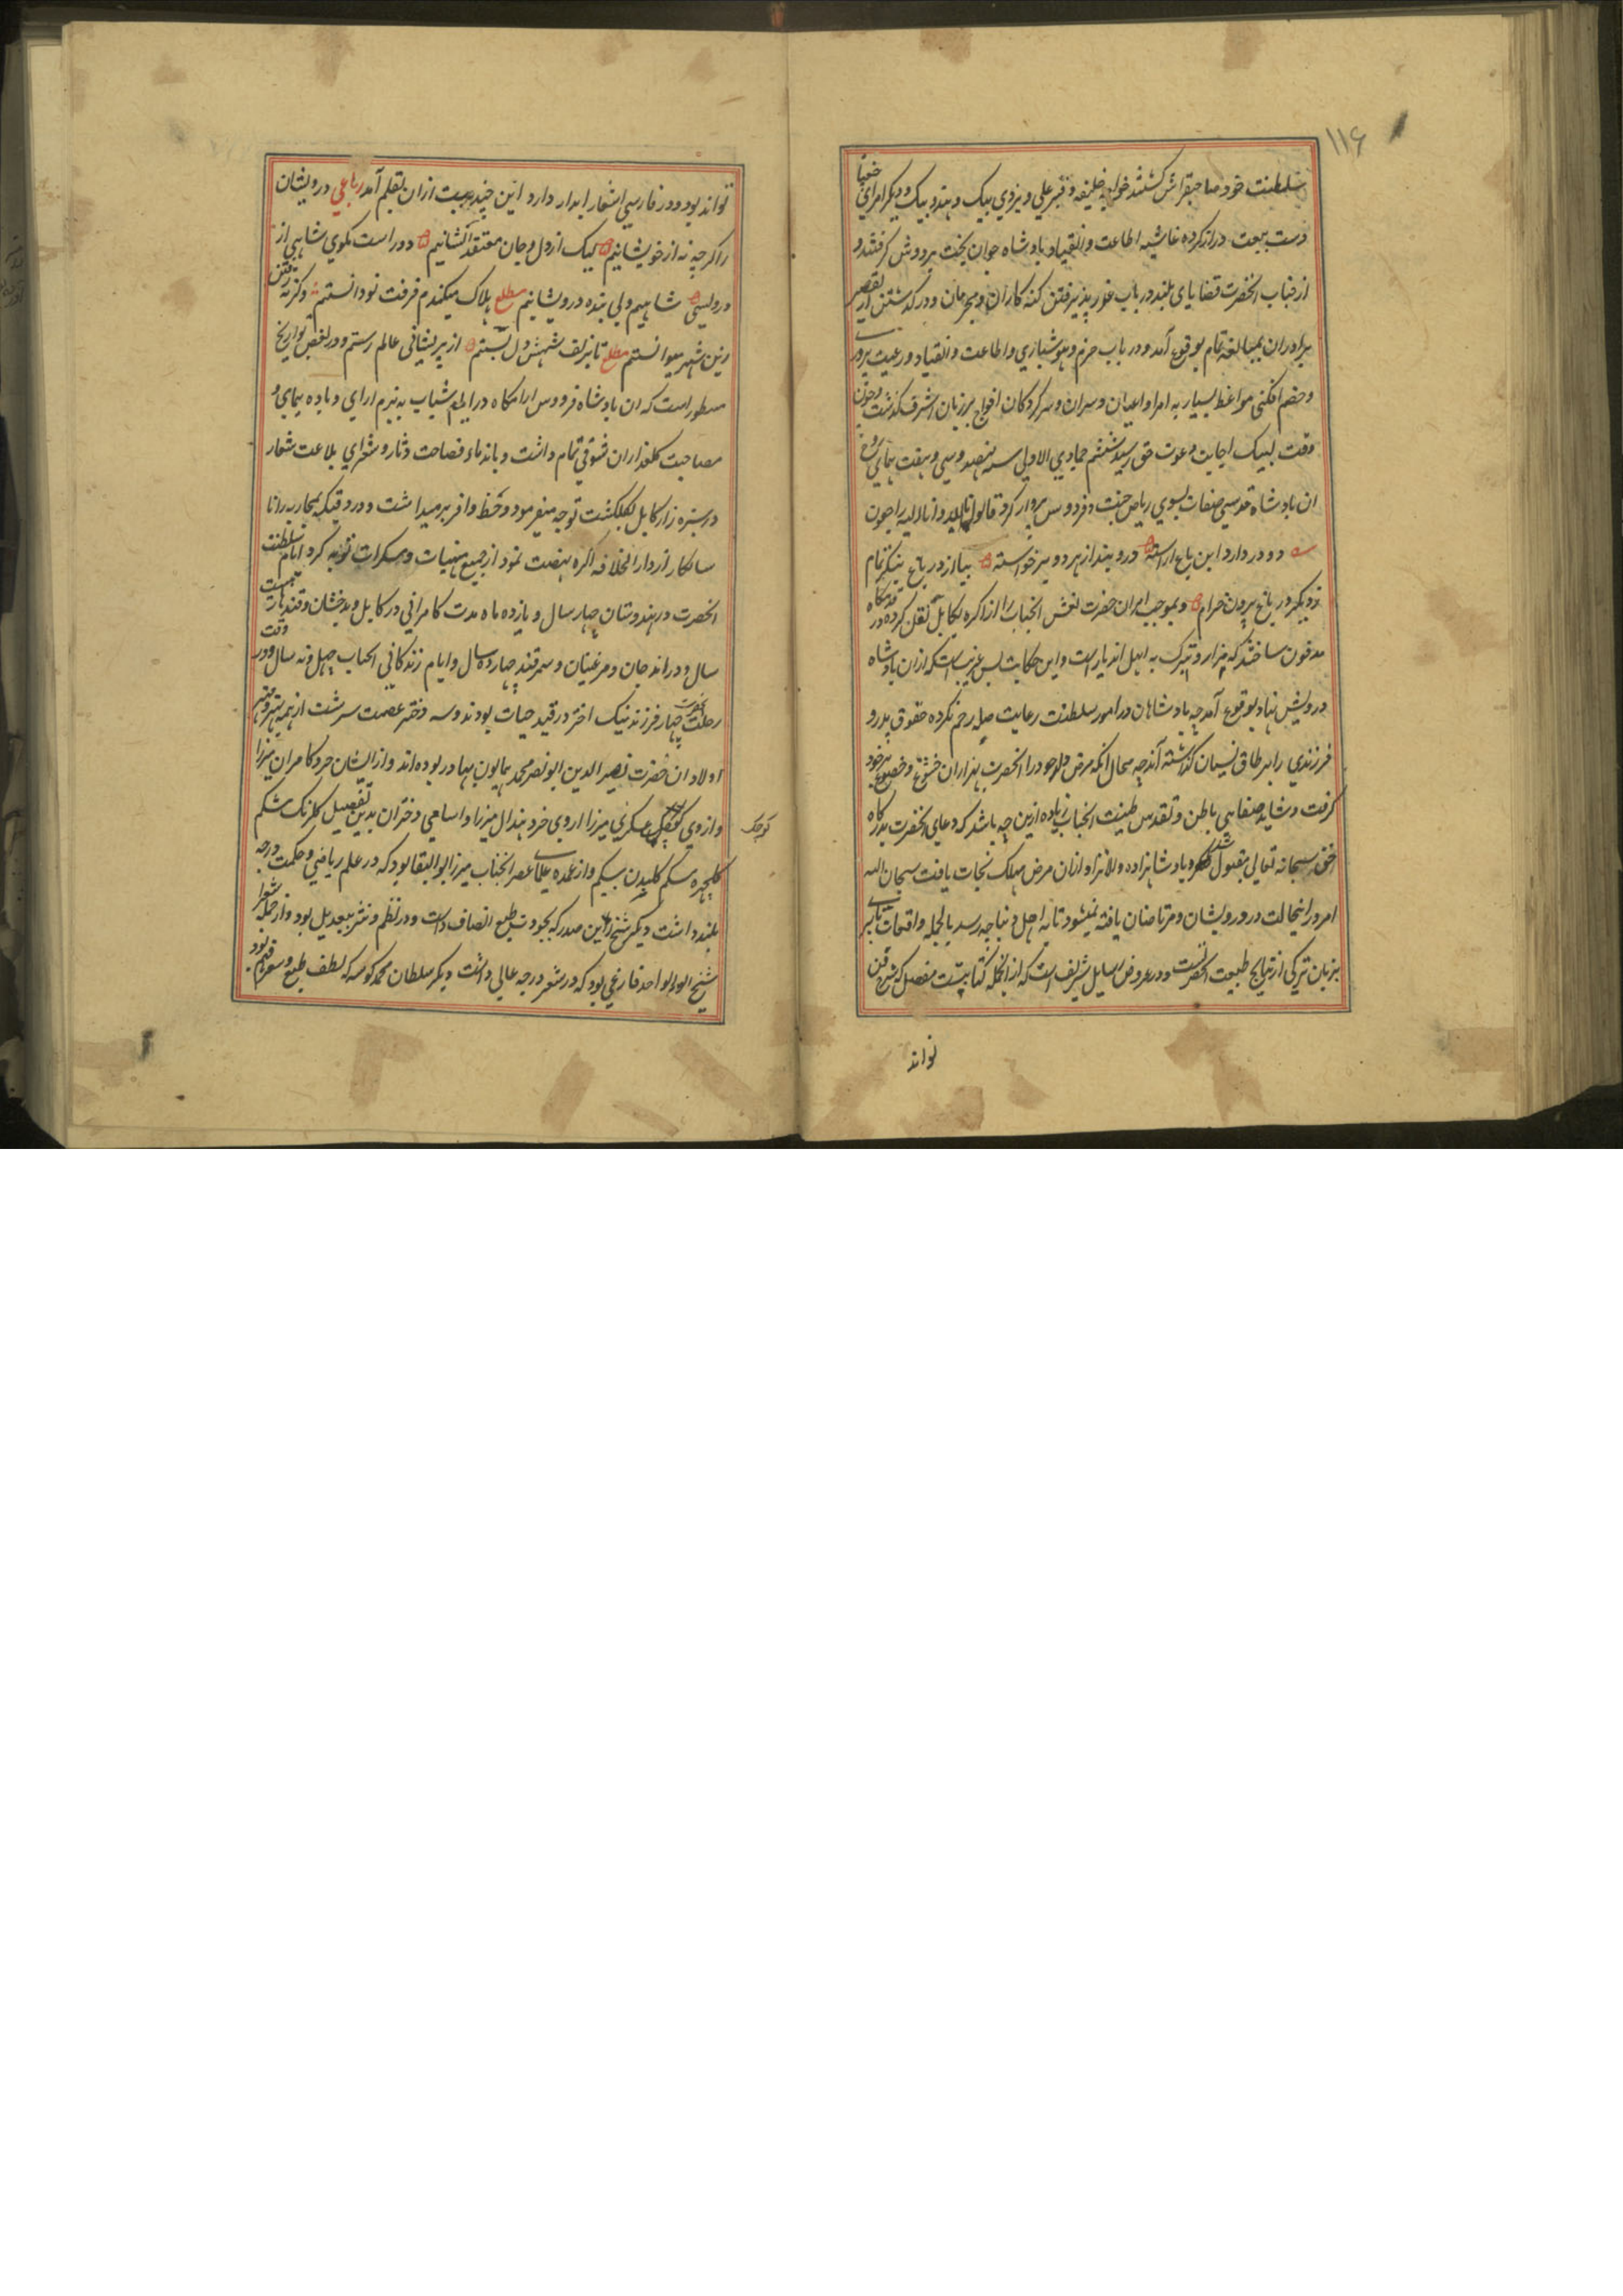 ۱۱۶
سلطنت خود صاحبقرانش گشتند خواجه خلیفه و قنبر علی و یزدی بیک و هندو بیک و دیکر امرای
دست بیعت دراز کرده غاشیه اطاعت و انقیاد بادشاه جوان بخت بر دوش کرفتند و
از جناب انحضرت قضایای بلند در باب عذر پذیرفتن کنه کاران و مجرمان و در کذشتن از تقصیر
برادران بمبالغه تمام بوقوع آمد و در باب حزم و هوشیاری و اطاعت و انقیاد و رعیت پروری
و خصم افکنی مواعظ بسیار به امرا و اعیان و سران و سرکردکان افواج بر زبان اشرف کذشت و چون
وقت لبیک اجابت دعوت حق رسید ششم جمادی الاولی سنه نهصد و سی و هفت
ان بادشاه قدسی صفات بسوی ریاض جنت و فردوس پرواز کرد قالوا انا لله و انا الیه راجعون
دو در دارد این باغ اراسته در و بند از هر دو برخواسته بیا از در باغ بنکر تمام
ز دیکر در باغ بیرون خرام و بموجب امر ان حضرت نعش انجناب را از اکره بکابل نقل کرده در
مدفون ساختند که مزار و تبرک به اهل اندیار است و این حکایت بس غریب است که ازان بادشاه
درویش نهاد بوقوع آمد چه بادشاهان در امور سلطنت رعایت صله رحم نکرده حقوق پدر و
فرزندی را بر طاق نسیان کذاشته آند چه محال انکه مرض ولد خود را انحضرت بهزاران خشوع و خضوع بر خود
کرفت و شاید صفاهی باطن و تقدس طینت انجناب زیاده ازین چه باشد که دعای انحضرت بدرکاه
حق سبحانه تعالی مقبول شد و بادشاهزاده والا نژاد ازان مرض مهلک نجات یافت سبحان الله
امروز اینحالت در درویشان و مرتاضان یافته نمیشود تا به اهل دنیا چه رسد بالجمله واقعات بابری
بزبان ترکی از نتایج طبیعت انحضرتست و در عروض رسایل شریف است که از انجمله کتابیست مفصل که شرح فن
تواند
تواند بود و در فارسی اشعار ابدار دارد این چند بیت ازان بقلم آمد رباعی درویشان
را اکرچه نه از خویشانیم لیک از دل و جان معتقد ایشانیم دور است مکوی شاهی از
درویشی شاهیم ولی بنده درویشانیم مطلع هلاک میکندم فرقت تو دانستم وکرنه رفتن
زین شهر میتوانستم مطلع تا بزلف شهش دل بستم از پریشانی عالم رستم و در بعض تواریخ
مسطور است که ان بادشاه فردوس ارامکاه در ایام شباب به بزم ارای و باده پیمای و
مصاحبت کلعذاران شوقی تمام داشت و با ندماء فصاحت دثار و شعرای بلاغت شعار
در سبزه زار کابل بکلکشت توجه میفرمود و حظ وافر بر میداشت و در وقتیکه بمحاربه رانا
سانکا از دار الخلافه اکره نهضت نمود از جمیع منهیات و مسکرات توبه کرد ایام سلطنت
انحضرت در هندوستان چهار سال و یازده ماه مدت کامرانی در کابل و بدخشان و قندهار بیست
سال و در اندجان و مرغینان و سمرقند چهارده سال و ایام زندکانی انجناب چهل و نه سال و در وقت
رحلت انحضرت چهار فرزند نیک اختر در قید حیات بودند و سه دختر عصمت سرشت از همه بهتر و مهتر
اولاد ان حضرت نصیر الدین ابو نصر محمد همایون بهادر بوده اند و از ایشان خرد کامران میرزا
و ازوی کوچک عسکری میرزا و ازوی خرد هندال میرزا و اسامی دختران بدین تفصیل کلرنک بیکم
کلچهره بیکم کلبدن بیکم و از عمده علمای عصر انجناب میرزا ابو البقا بود که در علم ریاضی و حکمت درجه
بلند داشت دیکر شیخ زین صدر که بجودت طبع اتصاف داشت و در نظم و نثر بیعدیل بود و از جمله شعرا
شیخ ابو الواحد فارغی بود که در شعر درجه عالی داشت دیکر سلطان محمد کوسه که لطف طبع و شعر فهم بود
کوچک